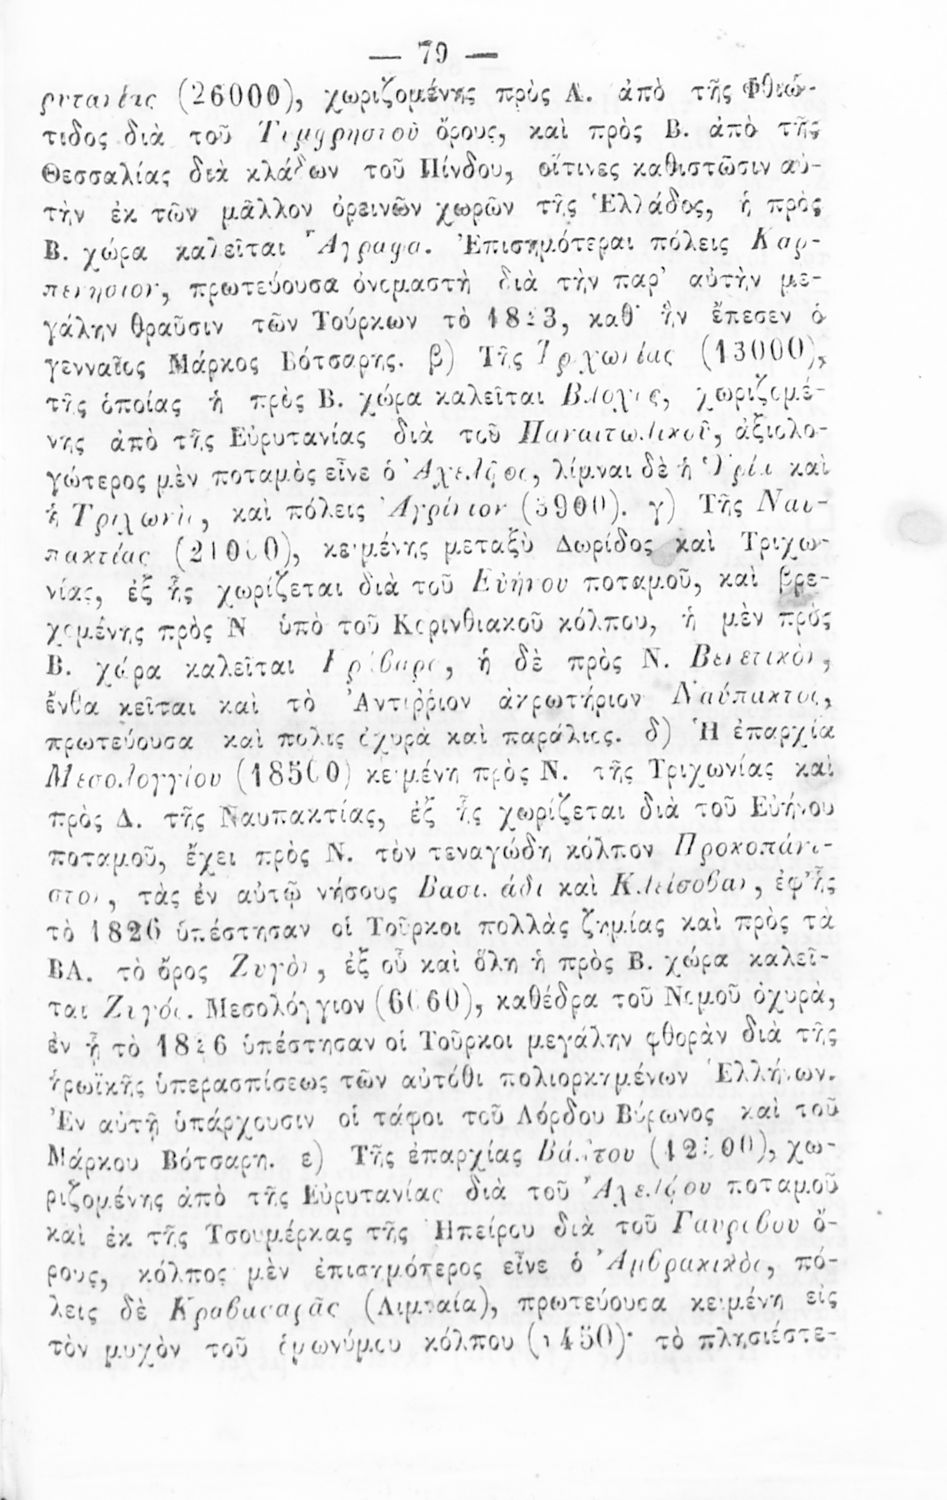 — 79 —
ρυτανίας (26000), χωριζομένης πρὸς Α. ἀπὸ τῆς Φθιώ-
τιδος διὰ τοῦ Τυμφρηστοῦ ὄρους, καὶ πρὸς Β. ἀπὸ τῆς
Θεσσαλίας διὰ κλάδων τοῦ Πίνδου, οἵτινες καθιστῶσιν αὐ-
τὴν ἐκ τῶν μᾶλλον ὀρεινῶν χωρῶν τῆς Ἑλλάδος, ἡ πρὸς
Β. χώρα καλεῖται Ἄγραφα. Ἐπισημότεραι πόλεις Καρ-
πενήσιον, πρωτεύουσα ὀνομαστὴ διὰ τὴν παρ’ αὐτὴν με-
γάλην θραῦσιν τῶν Τούρκων τὸ 1823, καθ’ ἣν ἔπεσεν ὁ
γενναῖος Μάρκος Βότσαρης. β) Τῆς Τριχωνίας (13000),
τῆς ὁποίας ἡ πρὸς Β. χώρα καλεῖται Βλοχὸς, χωριζομέ-
νης ἀπὸ τῆς Εὐρυτανίας διὰ τοῦ Παναιτωλικοῦ, ἀξιολο-
γώτερος μὲν ποταμὸς εἶνε ὁ Ἀχελῷος, λίμναι δὲ ἡ Ὑρία καὶ
ἡ Τριχωνὶς, καὶ πόλεις Ἀγρίνιον (5900). γ) Τῆς Ναυ-
πακτίας (21000), κειμένης μεταξὺ Δωρίδος καὶ Τριχω-
νίας, ἐξ ἧς χωρίζεται διὰ τοῦ Εὐήνου ποταμοῦ, καὶ βρε-
χομένης πρὸς Ν ὑπὸ τοῦ Κορινθιακοῦ κόλπου, ἡ μὲν πρὸς
Β. χώρα καλεῖται Κράβαρα, ἡ δὲ πρὸς Ν. Βενετικὸν,
ἔνθα κεῖται καὶ τὸ Ἀντίῤῥιον ἀκρωτήριον Ναύπακτος,
πρωτεύουσα καὶ πόλις ὀχυρὰ καὶ παράλιος. δ) Ἡ ἐπαρχία
Μεσολογγίου (18500) κειμένη πρὸς Ν. τῆς Τριχωνίας καὶ
πρὸς Δ. τῆς Ναυπακτίας, ἐξ ἧς χωρίζεται διὰ τοῦ Εὐήνου
ποταμοῦ, ἔχει πρὸς Ν. τὸν τεναγώδη κόλπον Προκοπάνι-
στον, τὰς ἐν αὐτῷ νήσους Βασιλάδι καὶ Κλείσοβαν, ἐφ’ ἧς
τὸ 1826 ὑπέστησαν οἱ Τοῦρκοι πολλὰς ζημίας καὶ πρὸς τὰ
ΒΑ. τὸ ὄρος Ζυγὸν, ἐξ οὗ καὶ ὅλη ἡ πρὸς Β. χώρα καλεῖ-
ται Ζυγός. Μεσολόγγιον (6060), καθέδρα τοῦ Νομοῦ ὀχυρὰ,
ἐν ᾗ τὸ 1826 ὑπέστησαν οἱ Τοῦρκοι μεγάλην φθορὰν διὰ τῆς
ἡρωϊκῆς ὑπερασπίσεως τῶν αὐτόθι πολιορκημένων Ἑλλήνων.
Ἐν αὐτῇ ὑπάρχουσιν οἱ τάφοι τοῦ Λόρδου Βύρωνος καὶ τοῦ
Μάρκου Βότσαρη. ε) Τῆς ἐπαρχίας Βάλτου χω-
ριζομένης ἀπὸ τῆς Εὐρυτανίας διὰ τοῦ Ἀχελῴου ποταμοῦ
καὶ ἐκ τῆς Τσουμέρκας τῆς Ἠπείρου διὰ τοῦ Γαυρίβου ὄ-
ρους, κόλπος μὲν ἐπισημότερος εἶνε ὁ Ἀμβρακικὸς, πό-
λεις δὲ Κραβασαρᾶς (Λιμναία), πρωτεύουσα κειμένη εἰς
τὸν μυχὸν τοῦ ὁμωνύμου κόλπου (1450)· τὸ πλησιέστε-